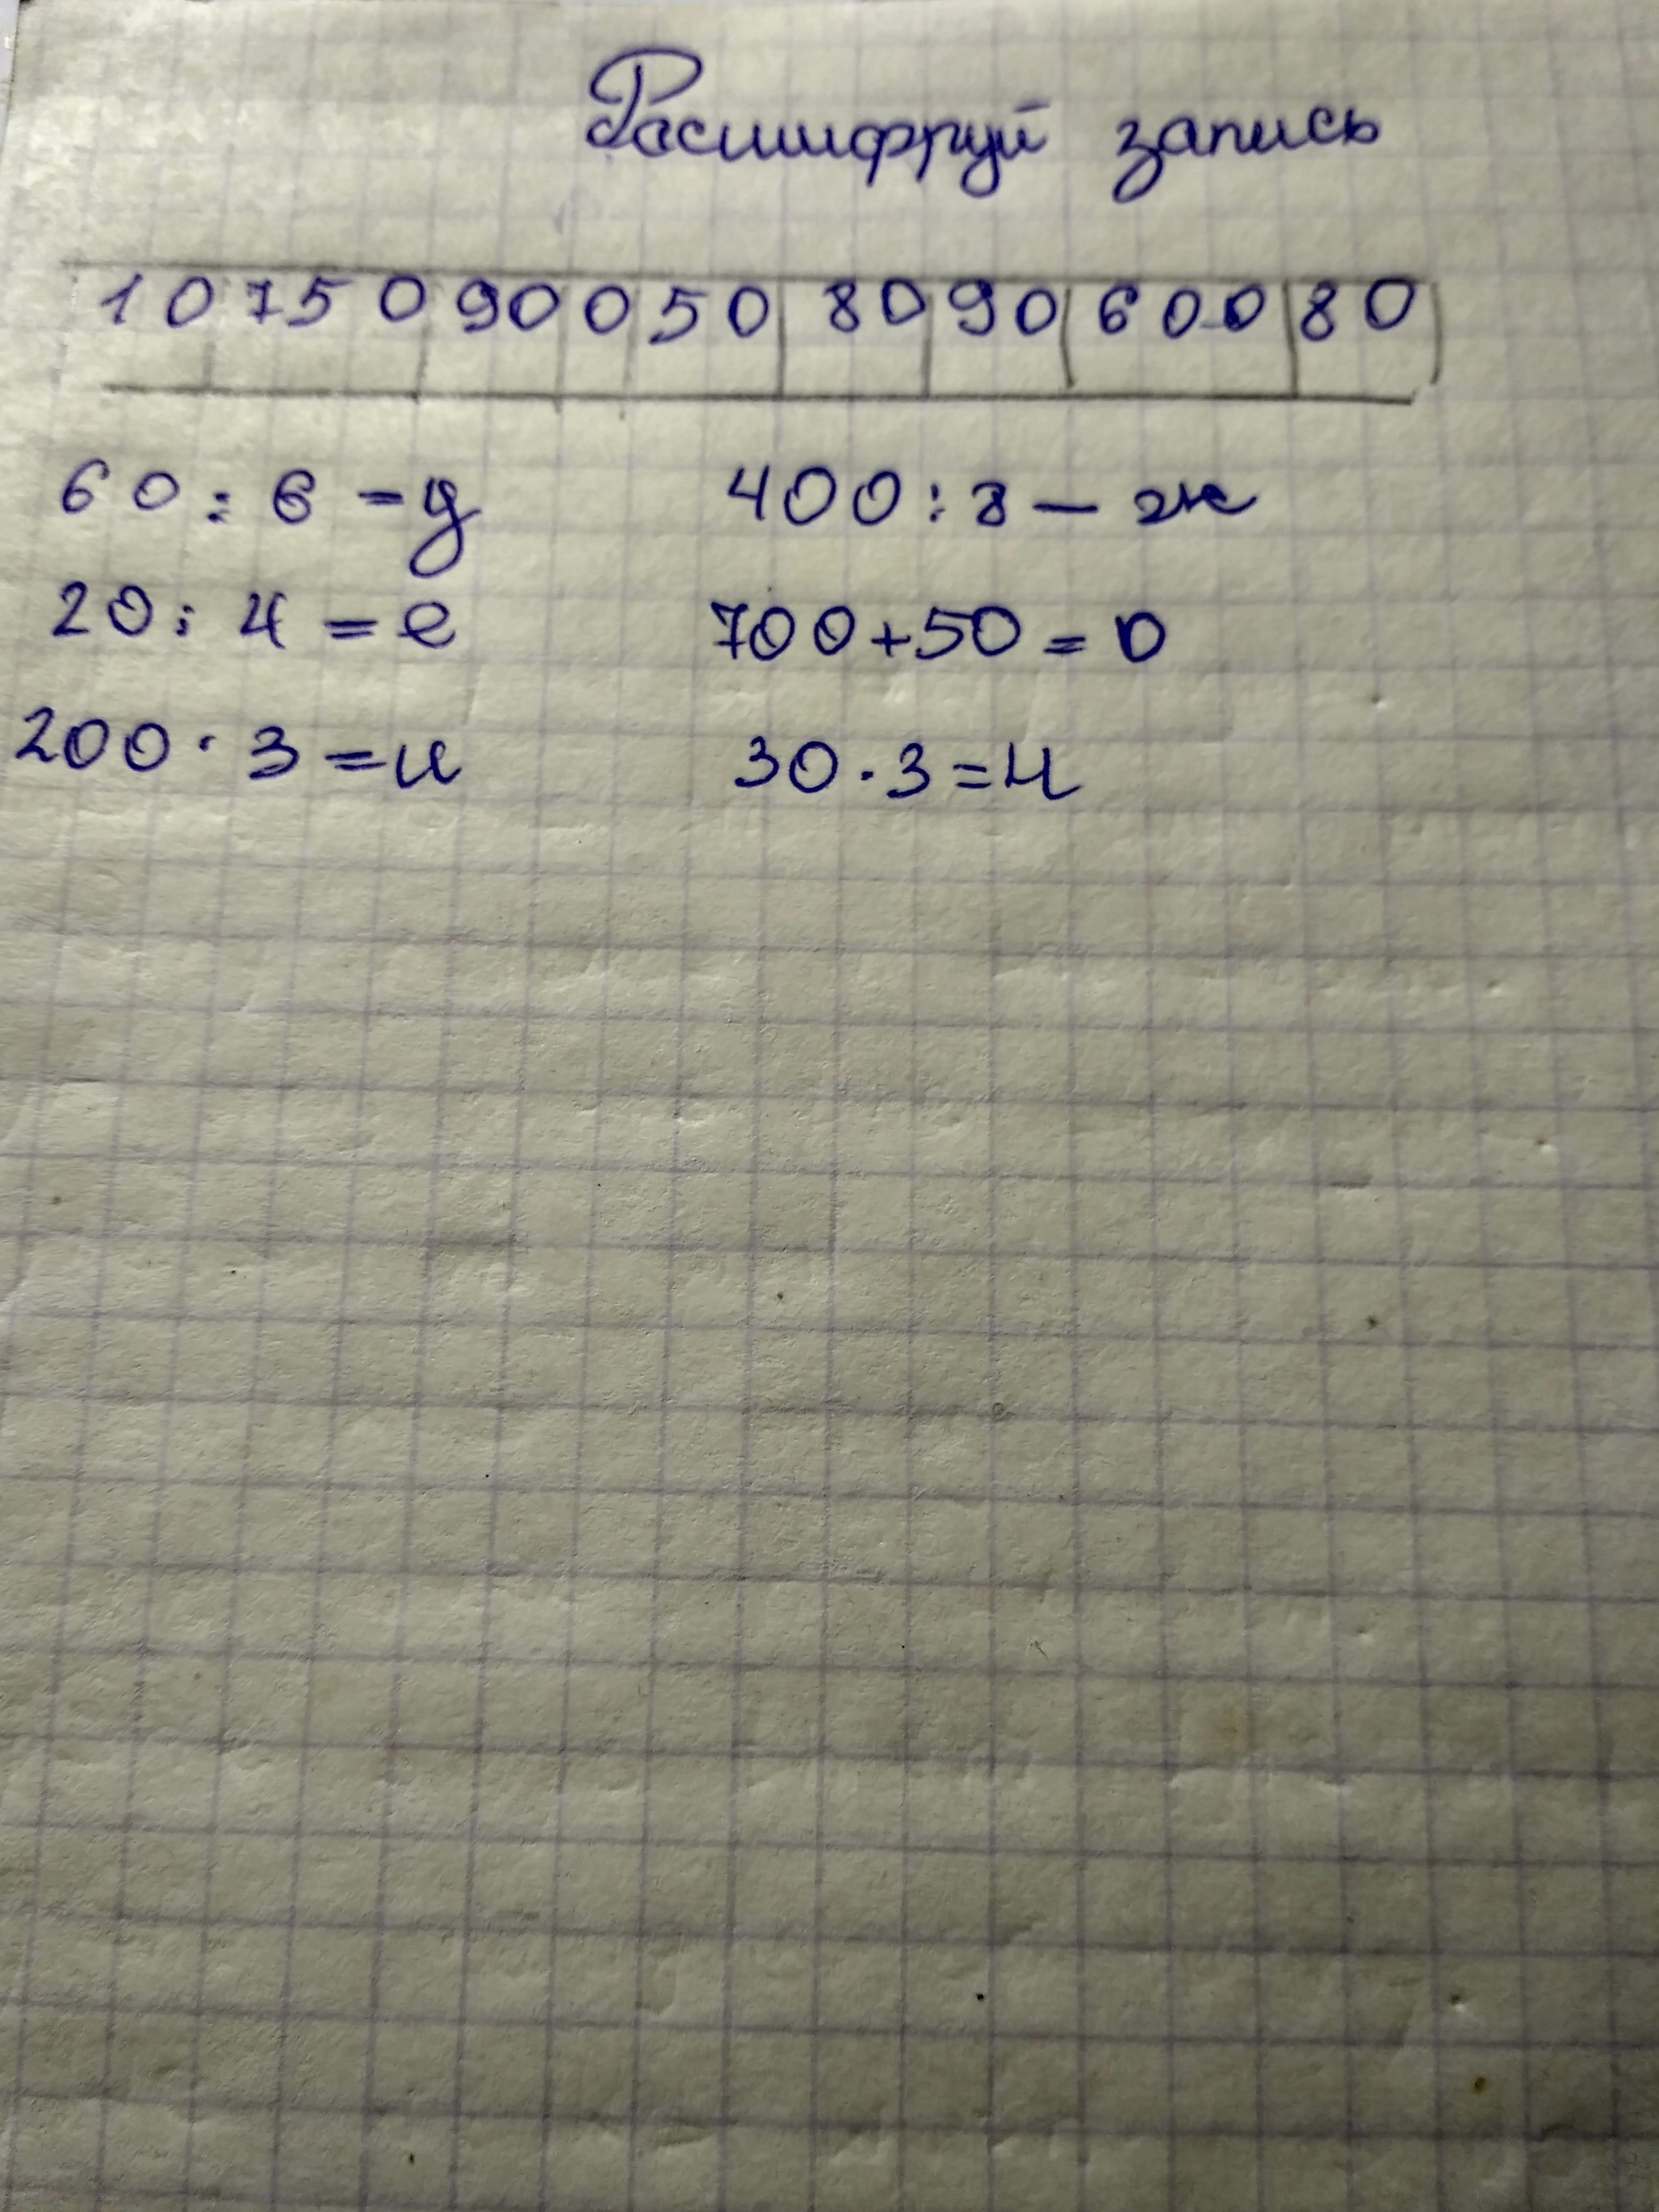 Расшифруй запись
10 750 90 0 50 80 90 600 80
60 : 6 = д 400 : 8 – ж
20 : 4 = е 700 + 50 = о
200 · 3 = и 30 · 3 = ц